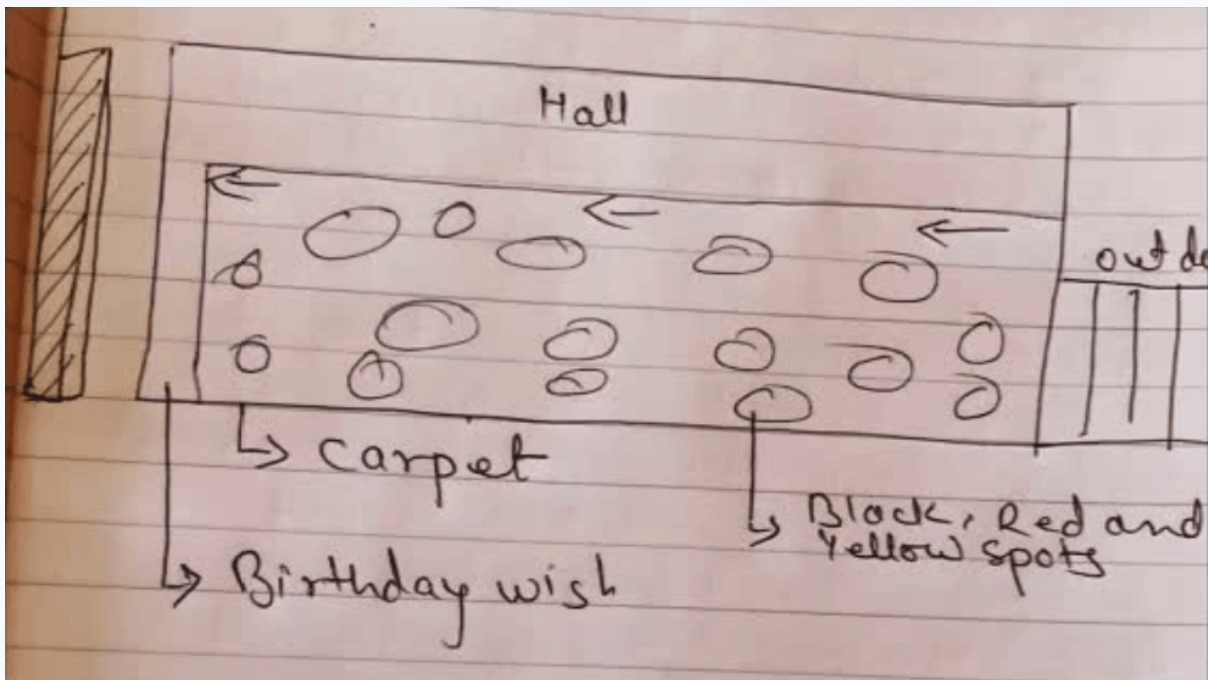 Hall
out de
Carpet
Black, Red and
Yellow spots
Birthday wish